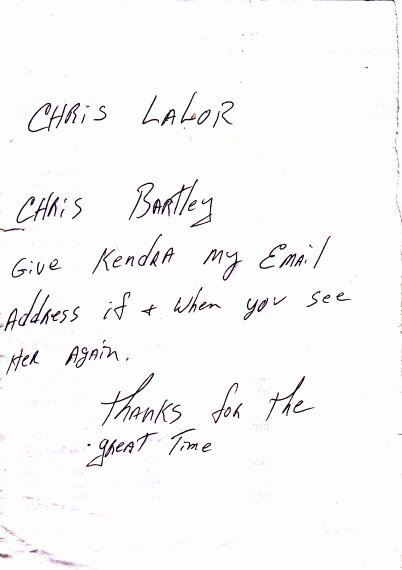 CHRiS LALOR
CHRiS BARtley
Give KendRA my EMAil
AddRess if + When you see
HeR AgAin.
thANKS foR the
gReAT Time